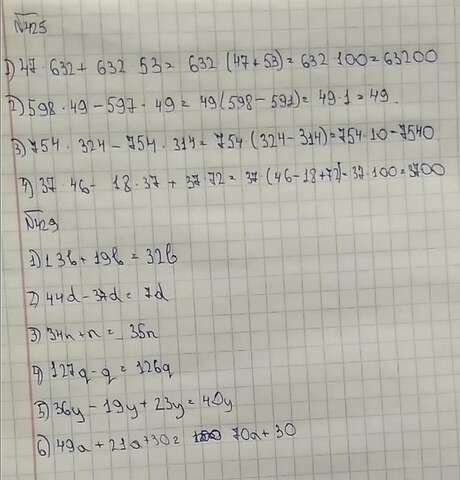 №425
1) 47 · 632 + 632 53 = 632 (47 + 53) = 632 100 = 63200
2) 598 · 49 - 597 · 49 = 49 (598 - 597) = 49 · 1 = 49.
3) 754 · 324 - 754 · 314 = 754 (324 - 314) = 754 · 10 = 7540
4) 37 46 - 18 · 37 + 37 · 72 = 37 · (46 - 18 + 72) = 37 · 100 = 3700
№429
1) 13b + 19b = 32b
2) 44d - 37d = 7d
3) 34n + n = 35n
4) 127q - q = 126q
5) 36y - 19y + 23y = 40y
6) 49a + 21a + 30 = 70a + 30